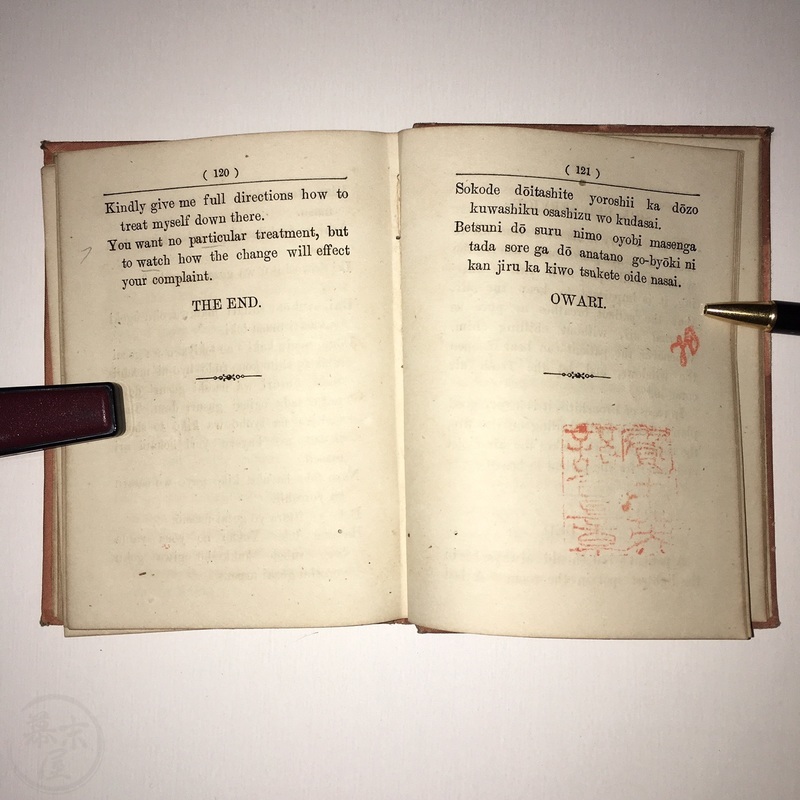 ( 120 )
Kindly give me full directions how to
treat myself down there.
You want no particular treatment, but
to watch how the change will effect
your complaint.
THE END.
( 121 )
Sokode dōitashite yoroshii ka dōzo
kuwashiku osashizu wo kudasai.
Betsuni dō suru nimo oyobi masenga
tada sore ga dō anatano go-byōki ni
kan jiru ka kiwo tsukete oide nasai.
OWARI.
幕末屋